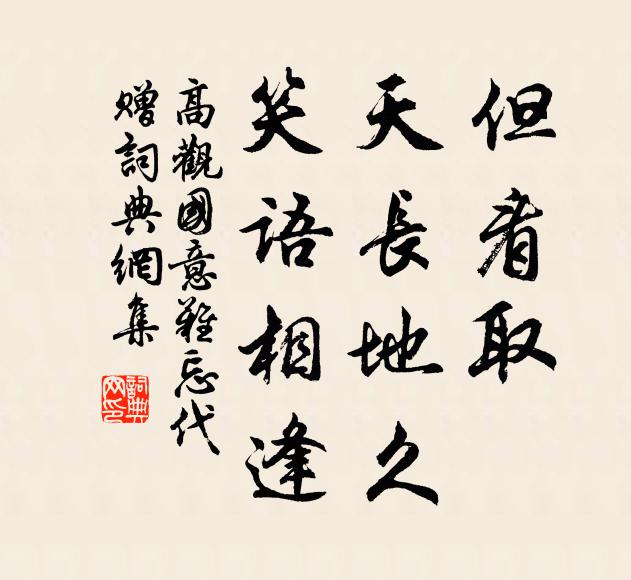 但看取
天長地久
笑語相逢
高觀國意難忘代
贈詞典網集
詞典
网印